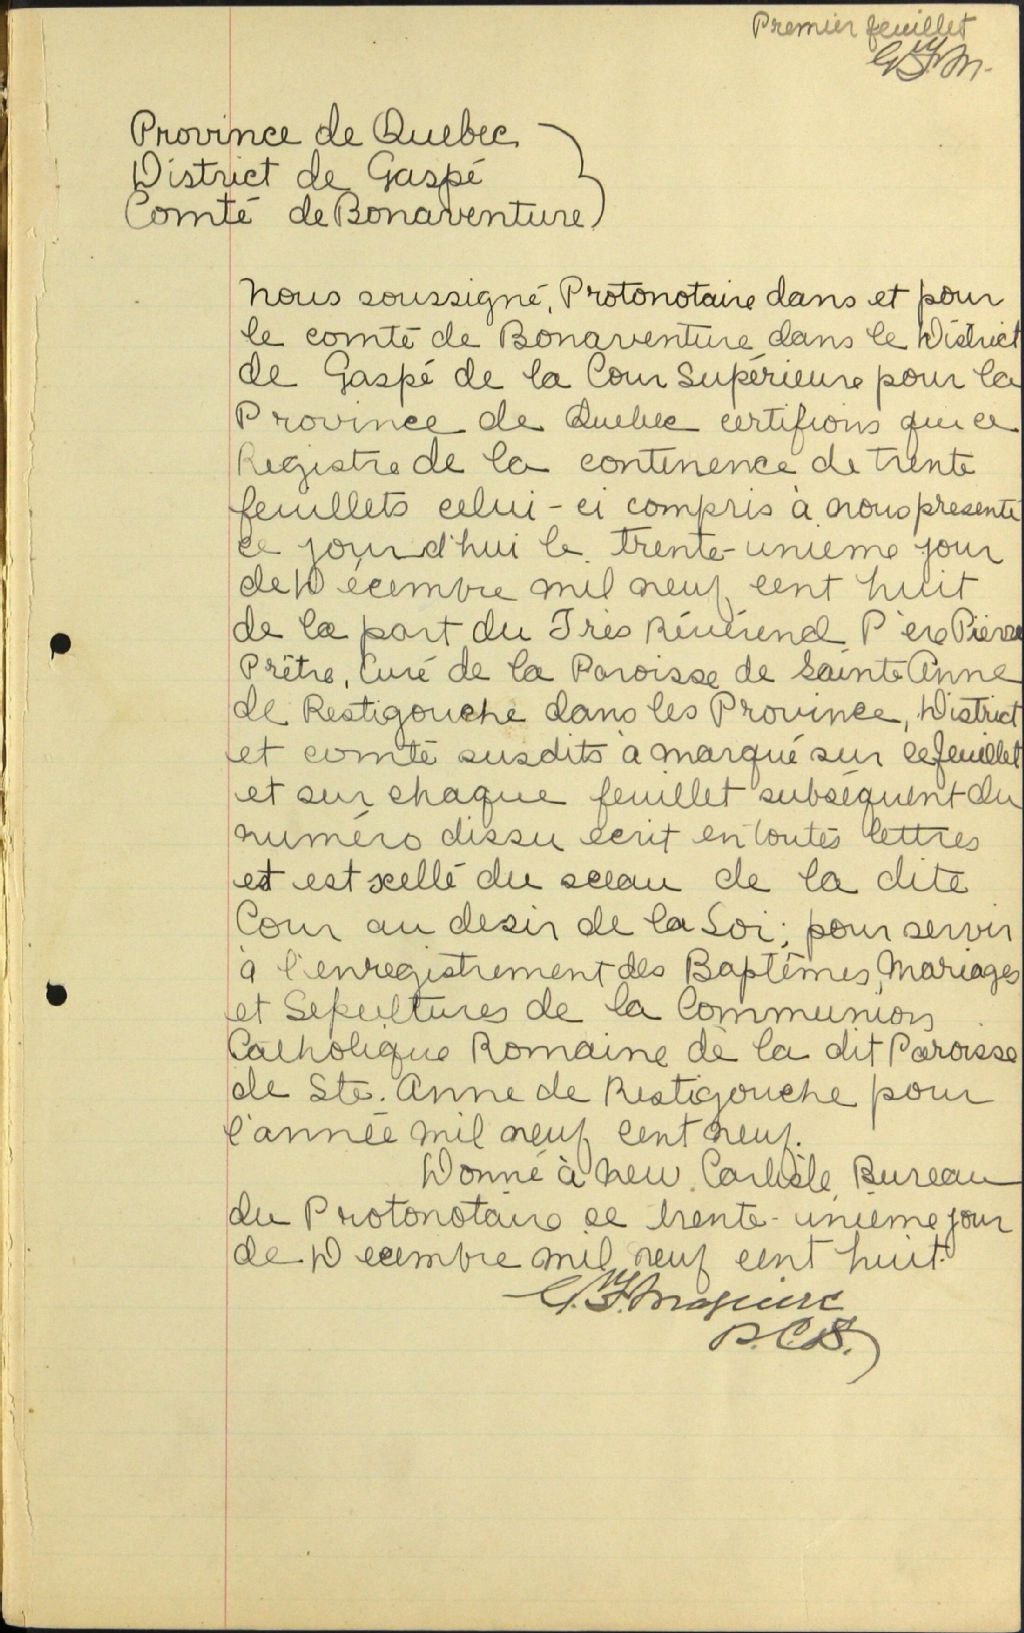 Premier feuillet
G.F.M.
Province de Quebec
District de Gaspé
Comté de Bonaventure
Nous soussigné, Protonotaire dans et pour
le comté de Bonaventure dans le District
de Gaspé de la Cour Supérieure pour la
Province de Quebec certifions que ce
Registre de la contenence de trente
feuillets celui-ci compris à nous presenté
ce jourd'hui le trente-unieme jour
de Décembre mil neuf cent huit
de la part du Très Révérend Père Pierre
Prêtre, Curé de la Paroisse de Sainte Anne
de Restigouche dans les Province, District
et comté susdits à marqué sur ce feuillet
et sur chaque feuillet subséquent du
numéro dissu ecrit en toutes lettres
et est scellé du sceau de la dite
Cour au desir de la Loi; pour servir
à l'enregistrement des Baptêmes, Mariages
et Sepultures de la Communion
Catholique Romaine de la dit Paroisse
de Ste. Anne de Restigouche pour
l'année mil neuf cent neuf.
Donné à New Carlisle, Bureau
du Protonotaire ce trente-unieme jour
de Decembre mil neuf cent huit.
Maguire
P.C.S.